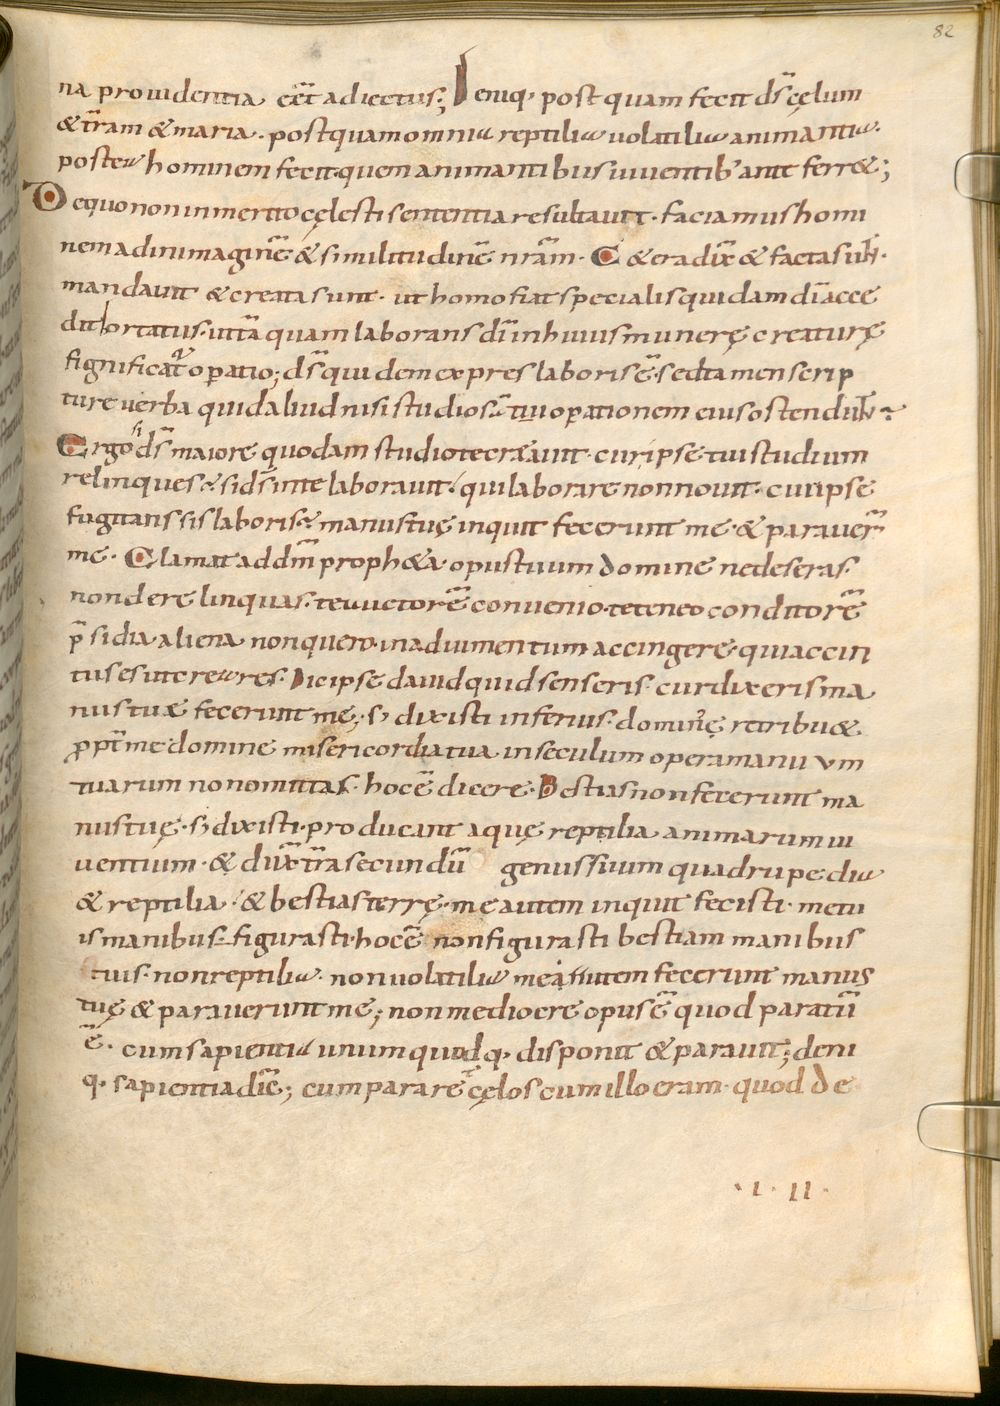 82
na prouidentia eēt adiectus; Deniq; post quam fecit d̄s cęlum
& t̄ram & maria. postquam omnia reptilia uolatilia animantia.
postea hominem fecit quem animantibus uiuentib' ante ferr&;
De quo non inmerito cęlesti sententia resultauit. faciamus homi
nem ad inimaginē & similitudinē nr̄am. C&era dix̄ & facta sun̄t.
mandauit & creata sunt. ut homo fiat specialis quidam dī acce
dit hortatus. ut ita quam laborans dī in huius munerę creaturę
significat̄ oꝑatio; d̄s quidem expres laboris ē. sed tamen scrip
ture uerba quid aliud nisi studiosā tuī oꝑationem eius ostendun̄t;
Ergo si d̄s maiore quodam studio te creauit. cur ipse tui studium
relinques? si d̄s inte laborauit. qui laborare nonnouit. cur ipse
fugitans sis laboris? manus tuę inquit fecerunt me. & parauer̄
me. Clamat ad dn̄m proph&a. opus tuum domine ne deseras.
non derelinquas. te auctorē conuenio. te teneo conditorē
p̄sidia aliena non quero. in adiumentum accingere. qui accin
tus es ut creares. Dic ipse dauid quid senseris. cur dixeris ma
nus tuæ fecerunt me; sꝫ dixisti inferius. dominę retribu&
ꝓpt̄ me domine misericordia tua in seculum opera manuum
tuarum non omittas. hoc ē dicere. Bestias non fecerunt ma
nus tuę. sꝫ dixisti. producant aquę reptilia animarum ui
uentium. & dix̄ t̄ra secundū genus suum quadrupedia
& reptilia. & bestias terrę. me autem inquit fecisti. me tu
is manibus figurasti. hoc ē non figurasti bestiam manibus
tuis. non reptilia. non uolatilia me autem fecerunt manus
tuę & parauerunt me; non mediocre opus ē quod paratū
ē. cum sapientia unum quodq; disponit & parauit; deni
q; sapientia dic̄; cum pararē cęlos cum illo eram. quod de
. I . II .